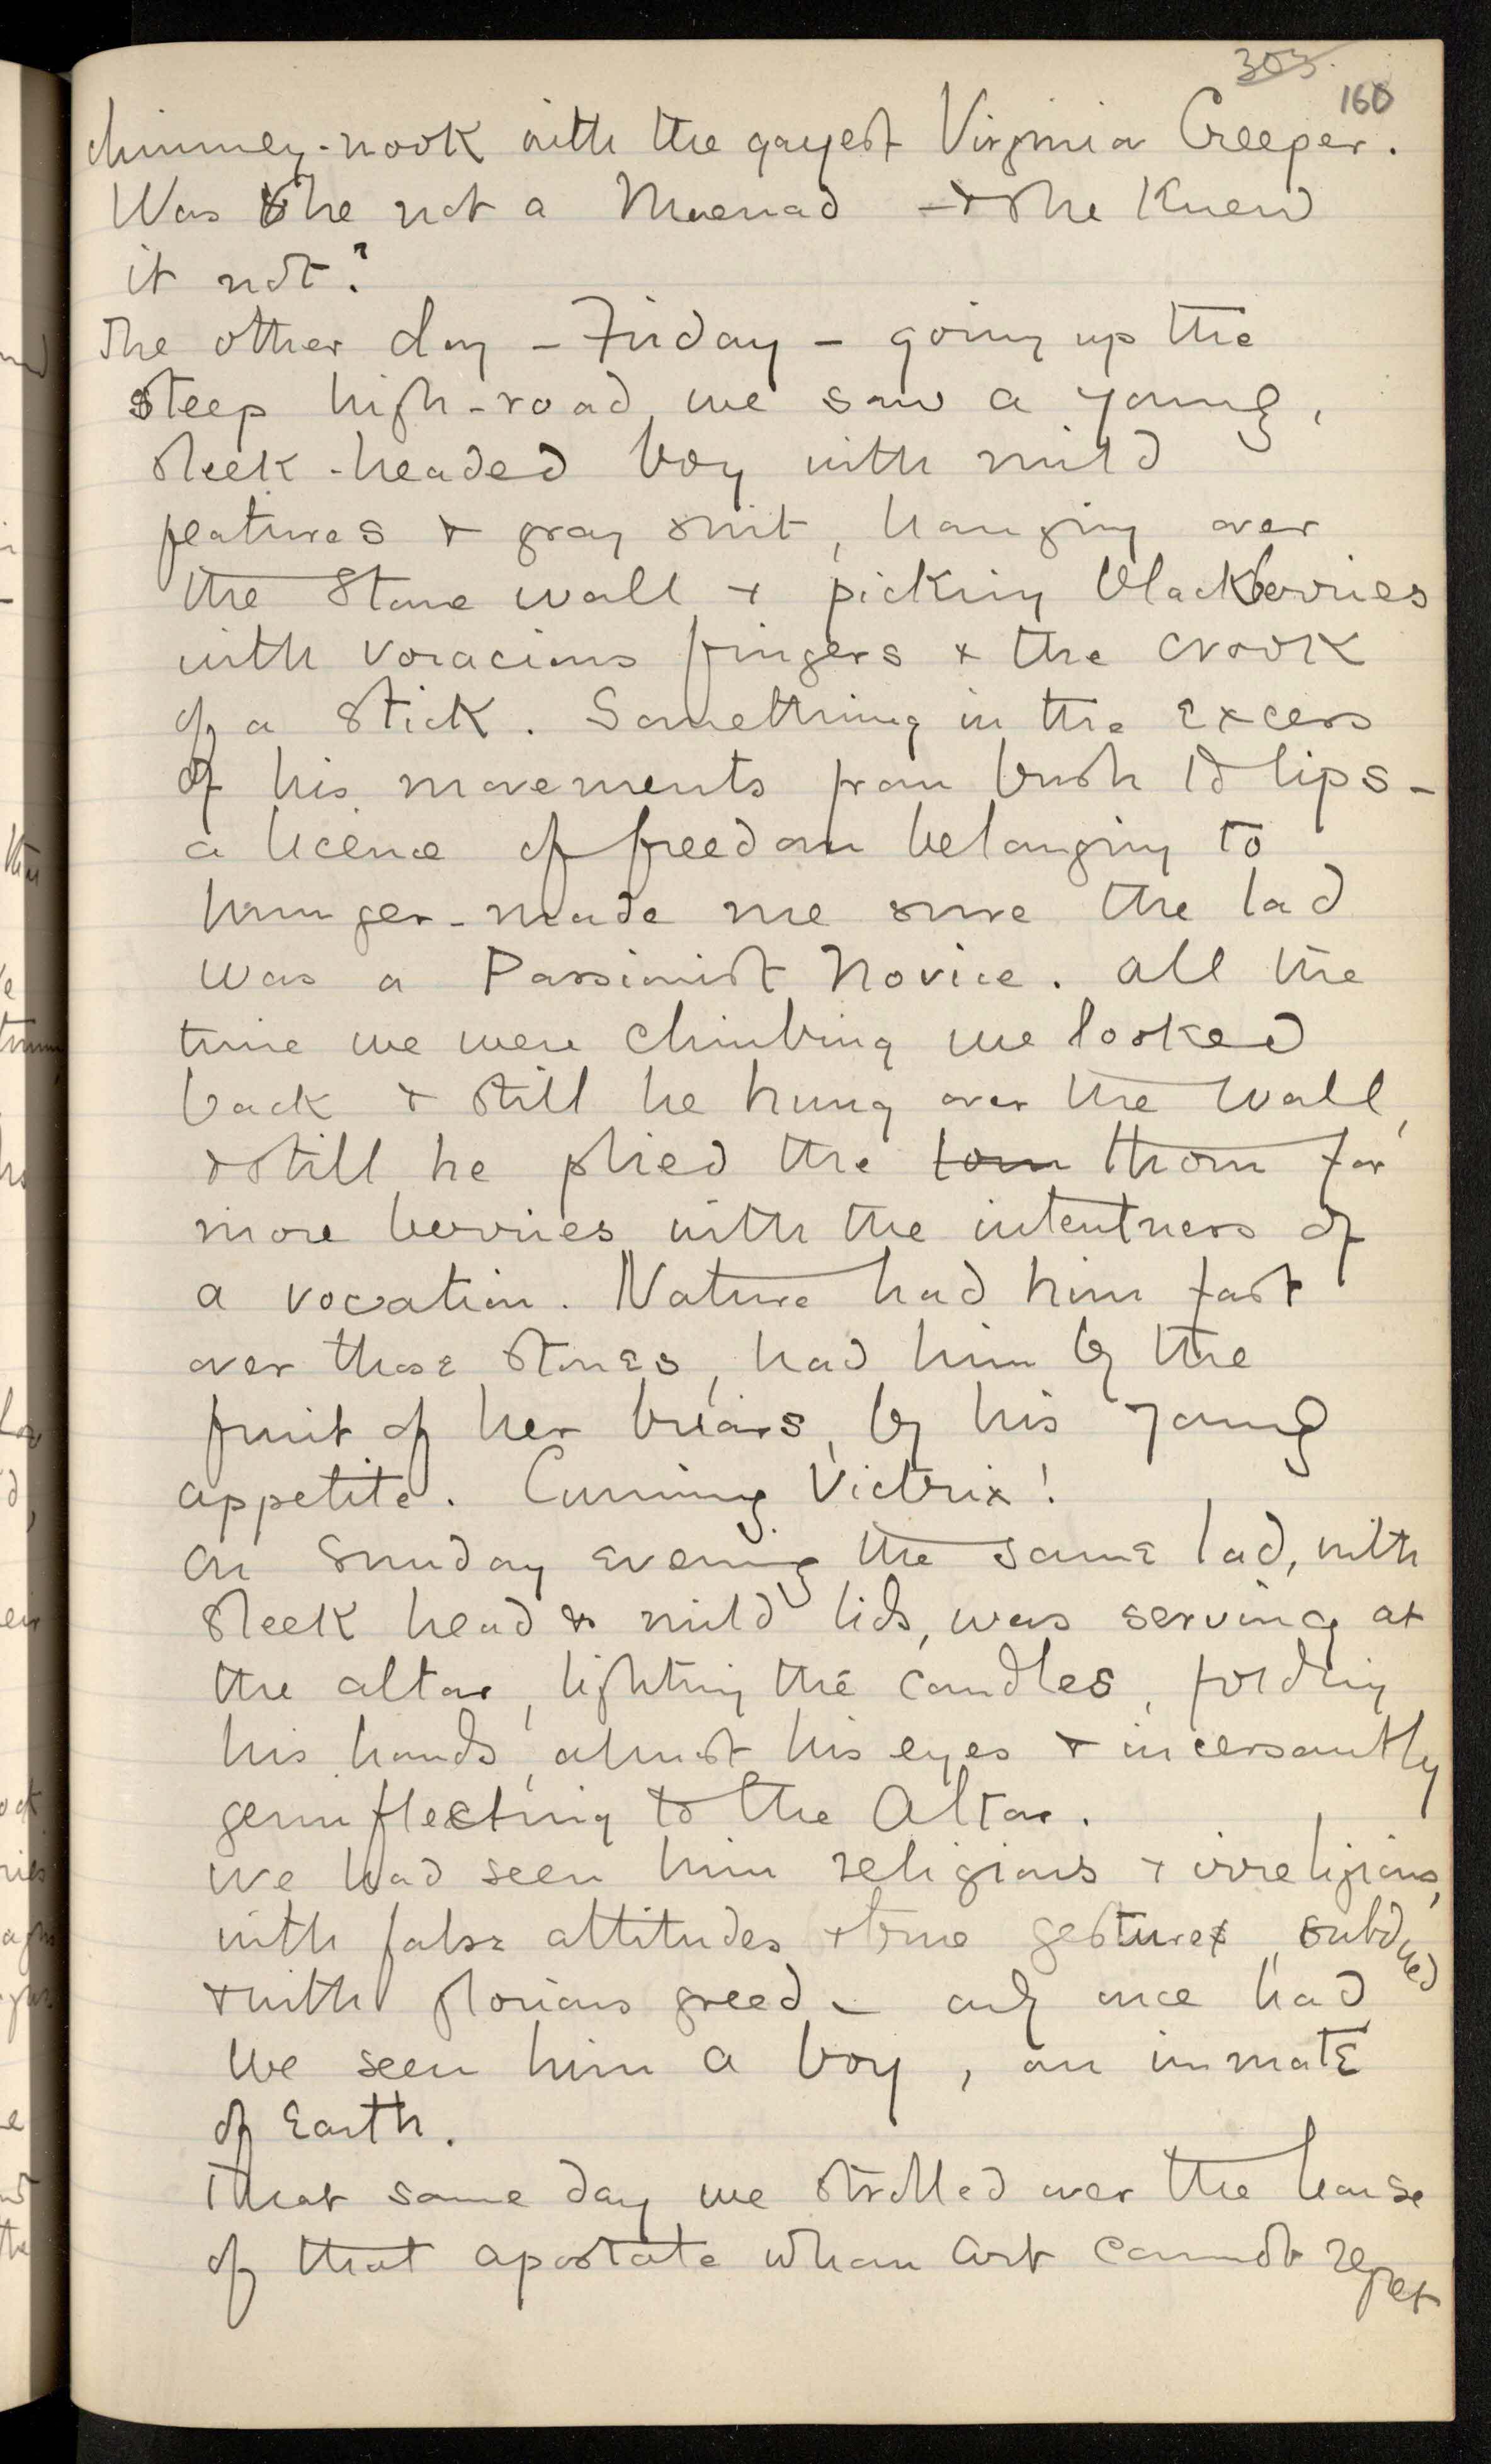 303.
160
chimney-nook with the gayest Virginia Creeper.
Was she not a Maenad - & she Knew
it not?
The other day - Friday - going up the
steep high-road, we saw a young,
sleek-headed boy with mild
features & gray suit, hanging over
the stone wall & picking blackberries
with voracious fingers & the crook
of a stick. Something in the excess
of his movements from bush to lips -
a licence of freedom belonging to
hunger - made me sure the lad
was a Passionist Novice. All the
time we were climbing we looked
back & still he hung over the wall,
& still he plied the torn thorn for
more berries with the intentness of
a vocation. Nature had him fast
over those stones, had him by the
fruit of her briars, by his young
appetite. Cunning Victrix!
On Sunday evening the same lad, with
sleek head & mild lids, was serving at
the altar, lighting the candles, folding
his hands, almost his eyes & incessantly
genuflecting to the Altar.
We had seen him religious & irreligious,
with false attitudes & true gestures, subdued
& with glorious greed - only once had
we seen him a boy, an inmate
of Earth.
That same day we strolled over the house
of that apostate whom Art cannot regret